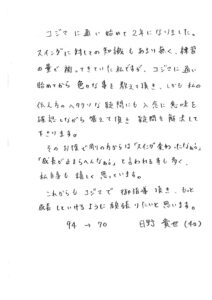 コジマに通い始めて2年になりました。
スイングに対しての知識もあまり無く、練習
の量で補ってきていた私ですが、コジマに通い
始めてから色々な事を教えて頂き、しかも私
の仏人のヘタクソな疑問にも入念に意味を
確認しながら答えて頂き疑問も解決して
下さります。
そのお陰で周りの方からは「スイング変わったなぁ」
「成長が止まらへんなぁ」と言われる事も多く、
私自身も嬉しく思っています。
これからもコジマで御指導頂き、もっと
成長していけるように頑張りたいと思います。
94 → 70
日野 貴世 (40)